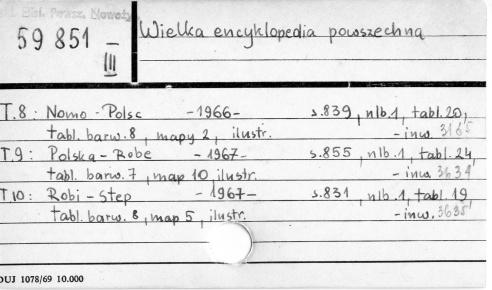 Bibl. Powsz. Nowoż
59 851 — III
Wielka encyklopedia powszechna
T.8: Nomo-Polsc -1966- s.839, nlb.1, tabl.20,
tabl. barw. 8, mapy 2, ilustr. - inw. 3165
T.9: Polska-Robe -1967- s.855, nlb.1, tabl.24,
tabl. barw. 7, map 10, ilustr. - inw. 3634
T10: Robi-Step -1967- s.831, nlb.1, tabl.19,
tabl. barw. 8, map 5, ilustr. - inw. 3635
DUJ 1078/69 10.000